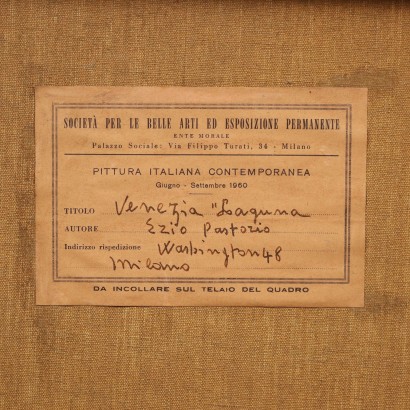 SOCIETÀ PER LE BELLE ARTI ED ESPOSIZIONE PERMANENTE
ENTE MORALE
Palazzo Sociale: Via Filippo Turati, 34 - Milano
PITTURA ITALIANA CONTEMPORANEA
Giugno - Settembre 1960
TITOLO Venezia "Laguna
AUTORE Ezio Pastorio
Indirizzo rispedizione Washington 48
Milano
DA INCOLLARE SUL TELAIO DEL QUADRO